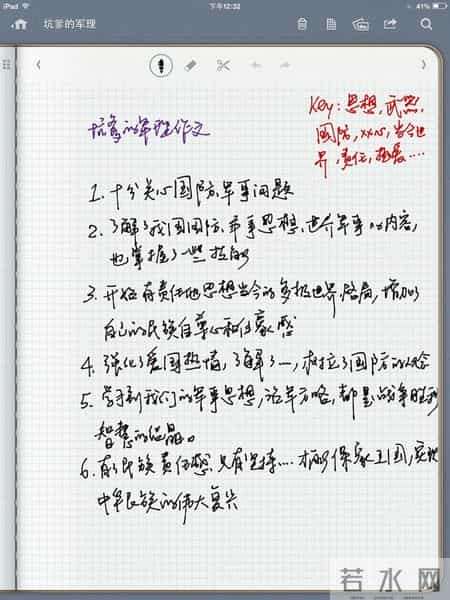 iPad
下午12:32
41%
坑爹的军理
坑爹的军理作文
Key: 思想, 武器,
国防, xx心, 当今世
界, 责任, 发展....
1. 十分关心国防,军事问题
2. 了解了我国国防,军事思想,世界军事的内容,
也掌握了一些技能
3. 开始有责任地思想当今的多极世界格局,增加了
自己的民族自尊心和自豪感
4. 强化了爱国热情,了解了一,树立了国防的观念
5. 学习到我们的军事思想,论军方略,都是战争胜利
智慧的结晶。
6. 有了民族责任感 只有坚持.... 才能保家卫国,实现
中华民族的伟大复兴
若水网